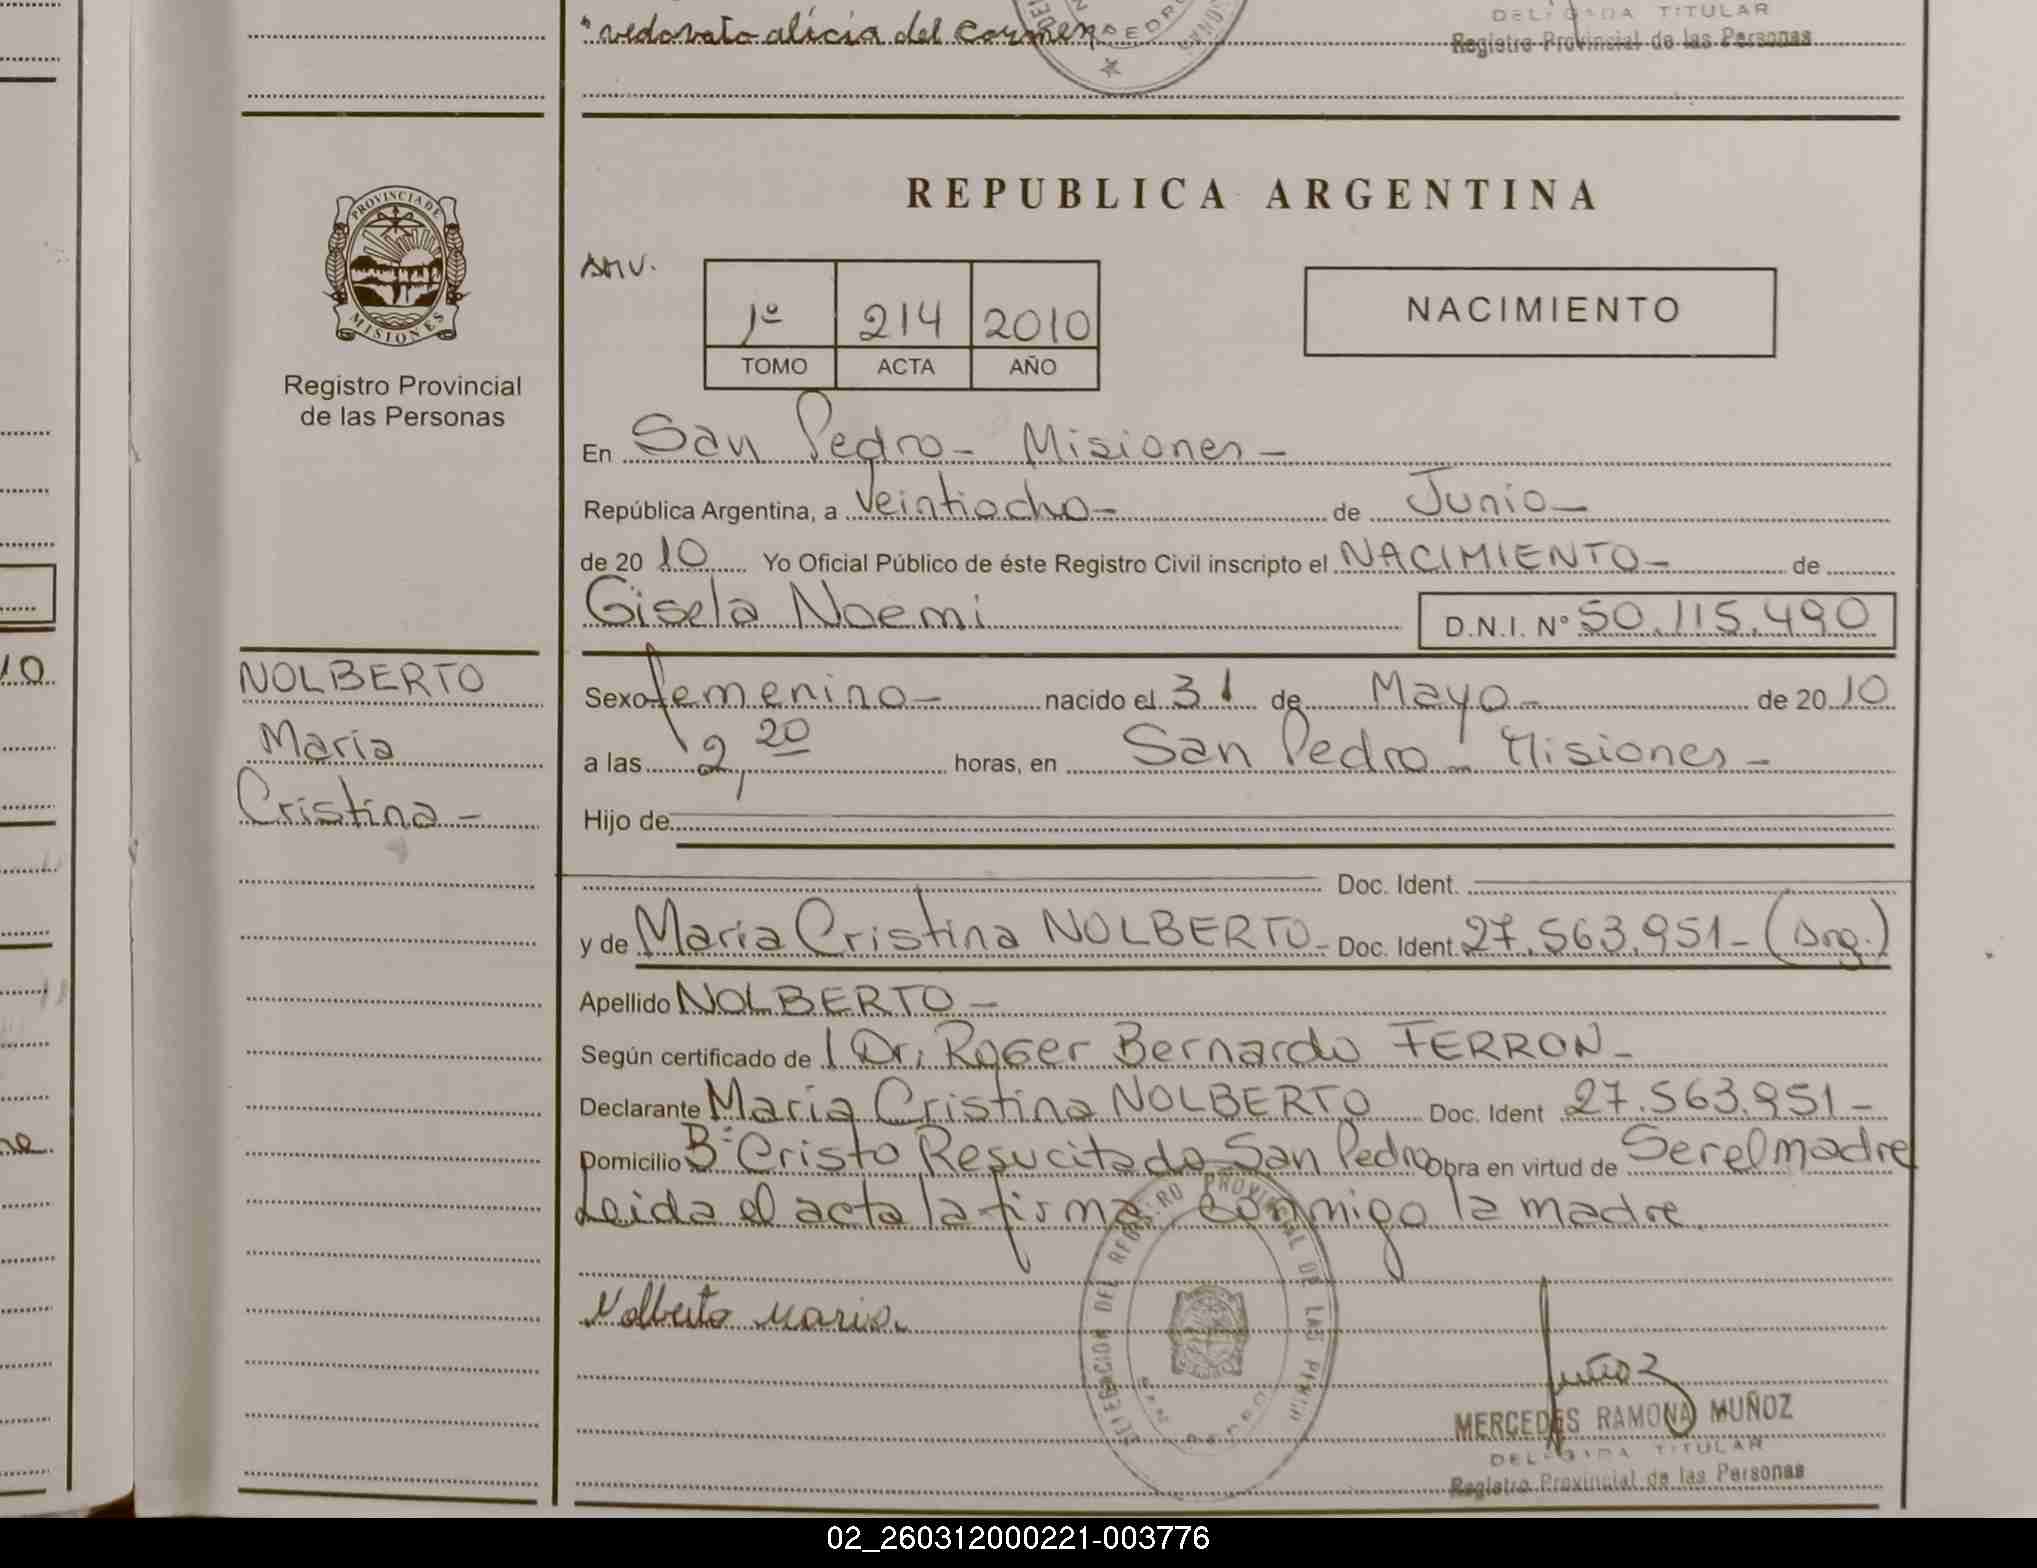 "vedovato alicia del Carmen
DELEGADA TITULAR
Registro Provincial de las Personas
PROVINCIA DE
MISIONES
Registro Provincial
de las Personas
REPUBLICA ARGENTINA
AMV.
1º 214 2010
TOMO ACTA AÑO
NACIMIENTO
En San Pedro - Misiones -
República Argentina, a Veintiocho - de Junio -
de 20 10 Yo Oficial Público de éste Registro Civil inscripto el NACIMIENTO - de
Gisela Noemi D.N.I. Nº 50.115.490
NOLBERTO
Maria
Cristina -
Sexo femenino - nacido el 31 de Mayo - de 20 10
a las 2,20 horas, en San Pedro - Misiones -
Hijo de
Doc. Ident.
y de Maria Cristina NOLBERTO - Doc. Ident. 27.563.951 - (Arg.)
Apellido NOLBERTO -
Según certificado de l Dr. Roger Bernardo FERRON -
Declarante Maria Cristina NOLBERTO Doc. Ident 27.563.951 -
Domicilio Bº Cristo Resucitado San Pedro Obra en virtud de Ser el madre
Leida el acta la firma conmigo la madre
DELEGACION DEL REGISTRO PROVINCIAL DE LAS PERSO
SAN PEDRO
Nolberto Maria.
Muñoz
MERCEDES RAMONA MUÑOZ
DELEGADA TITULAR
Registro Provincial de las Personas
02_260312000221-003776